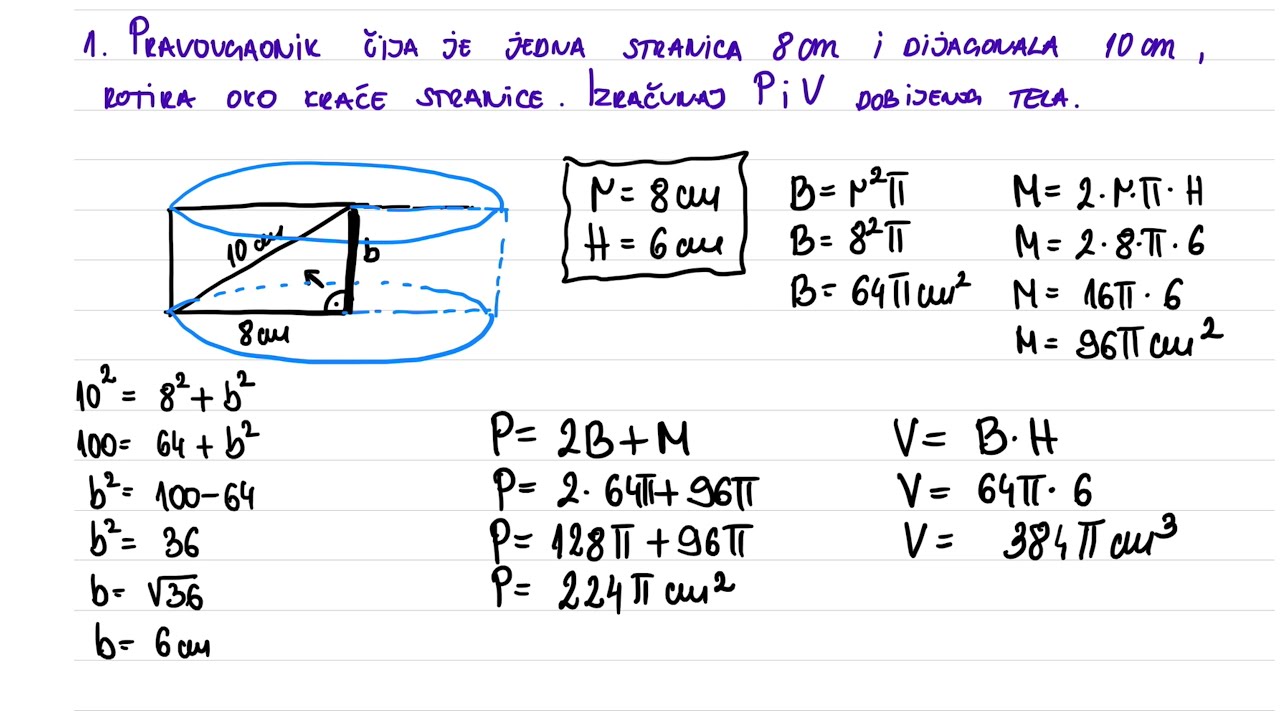 1. PRAVOUGAONIK ČIJA JE JEDNA STRANICA 8 cm i DIJAGONALA 10 cm,
ROTIRA OKO KRAĆE STRANICE. IZRAČUNAJ P i V DOBIJENOG TELA.
10 cm
b
8 cm
r = 8 cm
H = 6 cm
B = r²π
B = 8²π
B = 64π cm²
M = 2·r·π·H
M = 2·8·π·6
M = 16π·6
M = 96π cm²
10² = 8² + b²
100 = 64 + b²
b² = 100-64
b² = 36
b = √36
b = 6 cm
P = 2B + M
P = 2·64π + 96π
P = 128π + 96π
P = 224π cm²
V = B·H
V = 64π·6
V = 384π cm³